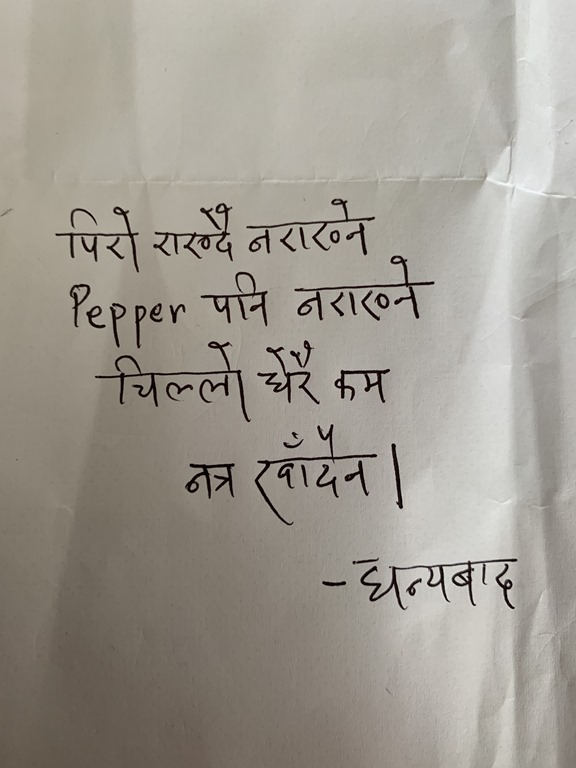 पिरो राख्दै नराख्ने
Pepper पनि नराख्ने
चिल्लो धेरै कम
नत्र खाँदैन।
-धन्यबाद